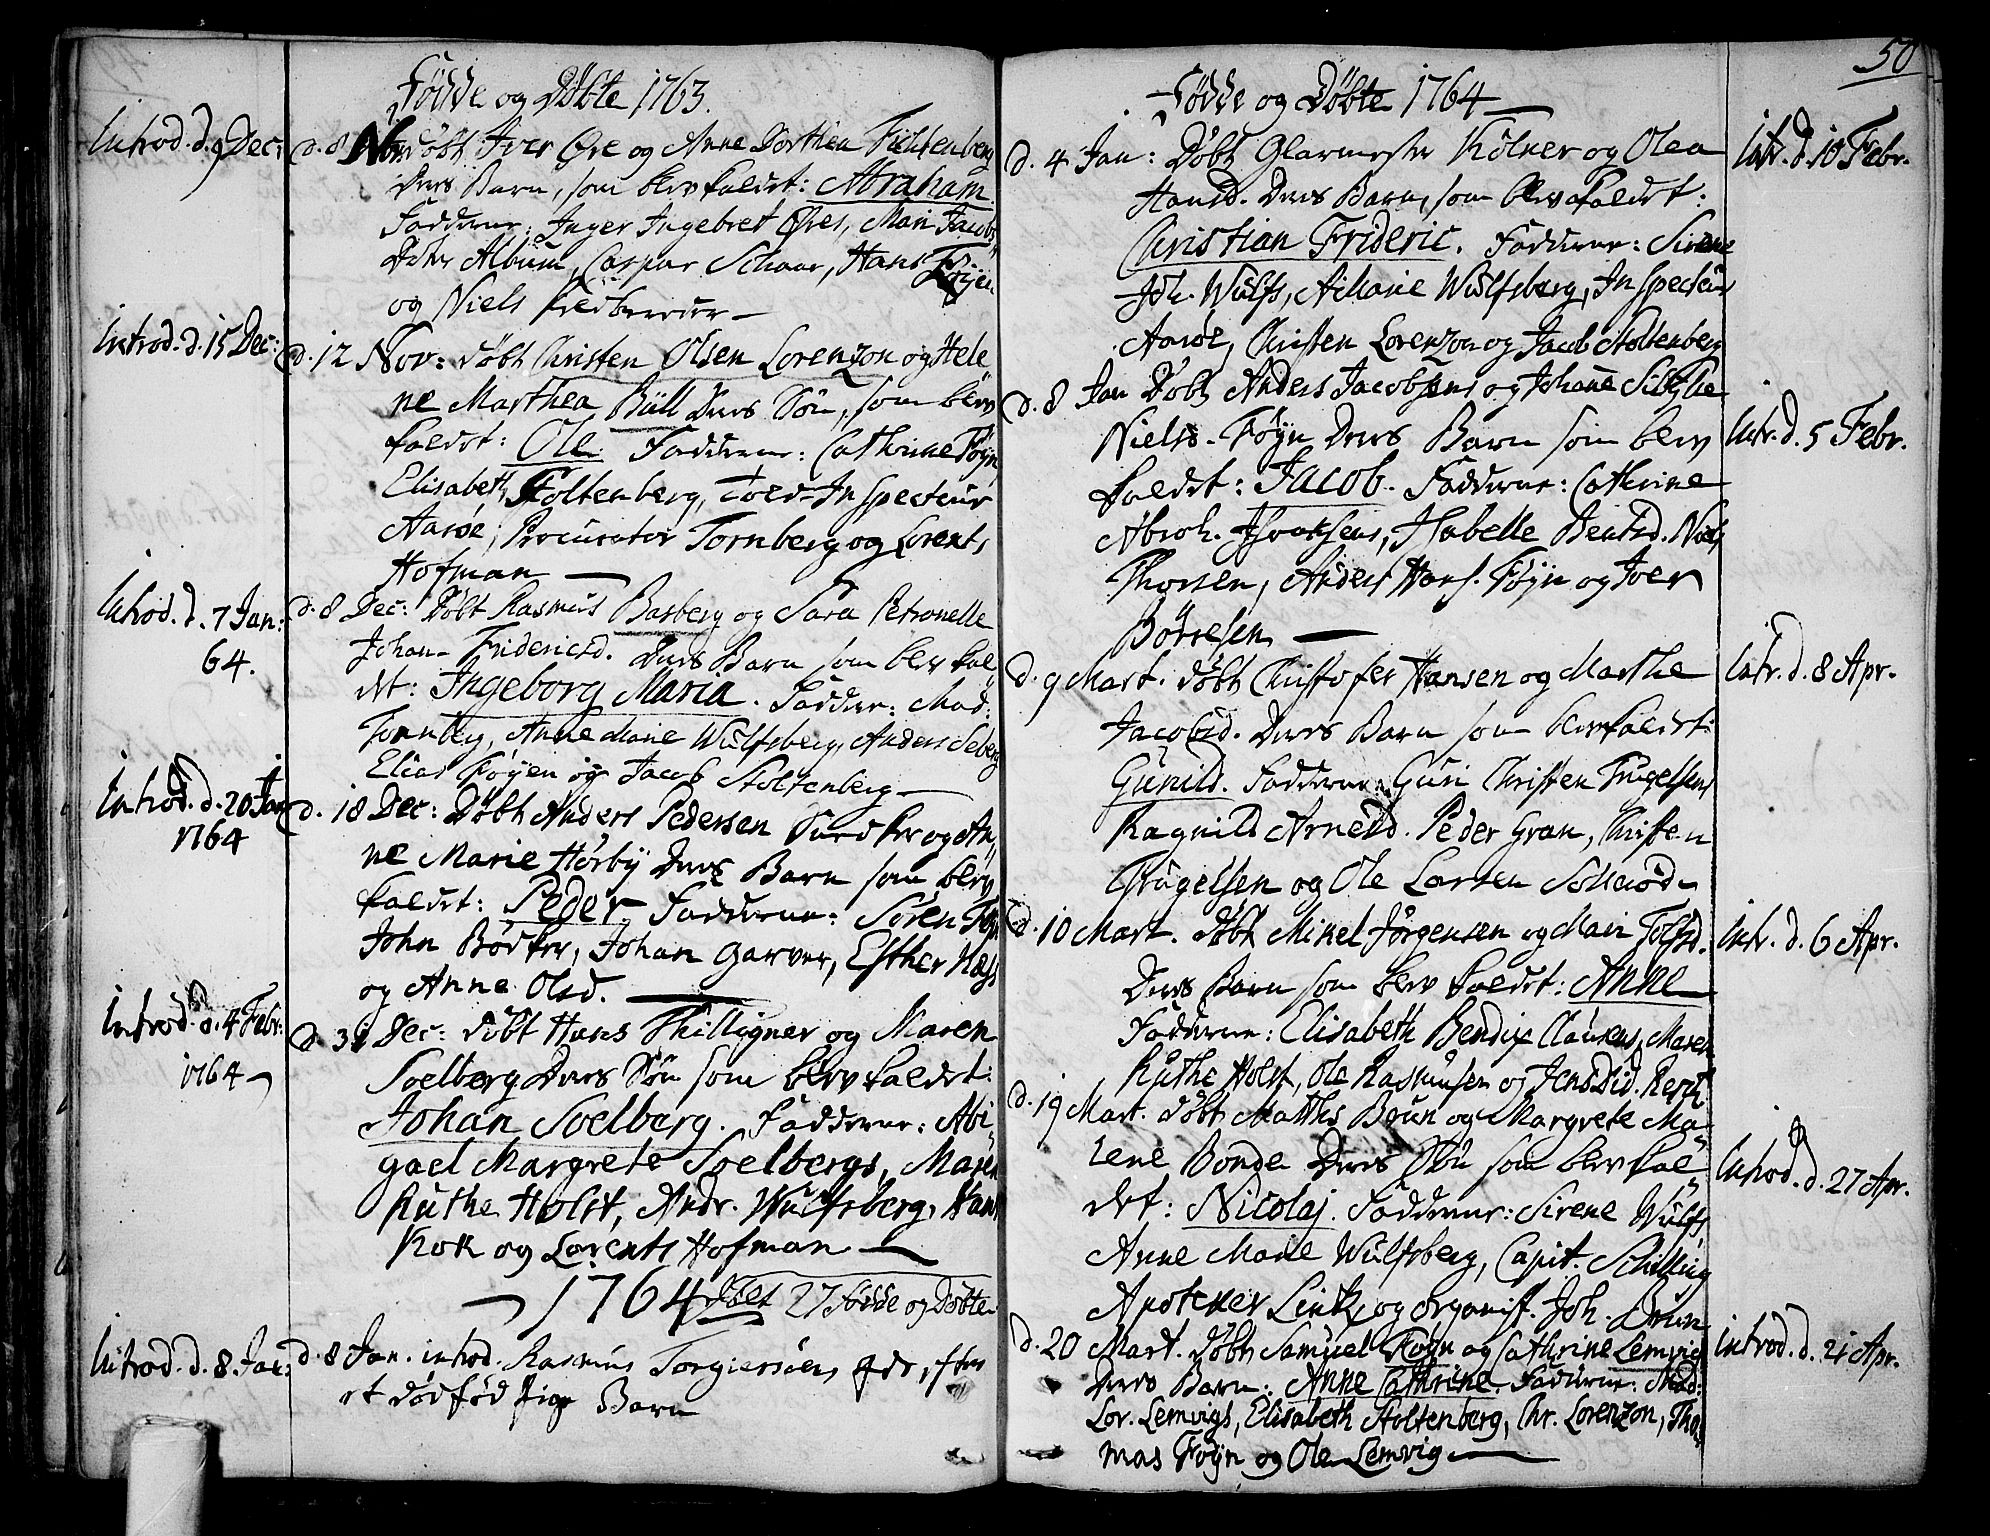 Fødde og Døbte 1763.
Introd. d. 9 Dec:
d. 8 Nov: døbt Iver Øre og Anne Dorthea Fichtenberg
Deres Barn, som blev kaldet: Abraham.
Fadderne: Inger Ingebret Øres, Mari Jacobs
Dotter Album, Caspar Schaar, Hans Føyen
og Niels
Introd. d. 15 Dec:
d. 12 Nov: døbt Christen Olsen Lorenzon og Hele
ne Marthea Büll Deres Søn, som blev
kaldet: Ole Fadderne: Cathrine Føyn,
Elisabeth Stoltenberg, Toed-Inspecteur
Aarøe, Procurator Tornberg og Lorents
Hofman
Introd. d. 7 Jan:
64.
d. 8 Dec: Døbt Rasmus Basberg og Sara Petronelle
Johan- Fridericsd. Deres Barn som blev kal
det: Ingeborg Maria. Fadderne: Mad:
Tornberg, Anne Marie Wülfsberg, Anders Seberg
Elias Føyen og Jacob Stoltenberg
Introd. d. 20 Jan
1764
d. 18 Dec: Døbt Anders Pedersen og An
ne Marie Hørbÿ Deres Barn som blev
kaldet: Peder Fadderne: Søren Føyn
John Bødker, Johan Garver, Esther Næss
og Anne Olsd.
Introd. d. 4 Febr:
1764
d. 31 Dec: døbt Hans Thilligner og Maren
Soelberg Deres Søn som blev kaldet:
Johan Soelberg. Fadderne: Abi
gael Margrete Soelbergs, Maren
Ruthe Holst, Andr. Wülfsberg, Hans
Kok og Lorents Hofman
1764 27 Fødde og Døbte
Introd. d. 8 Jan:
d. 8 Jan. introd. Rasmus Torgiersøens efter
et dødfød Pige Barn
50
Fødde og Døbte 1764
d. 4 Jan: Døbt Glarmester Kölner og Olea
Hansd. Deres Barn, som blev kaldet:
Christian Frideric. Fadderne: Sirene
Joh. Wülfs, A: Marie Wülfsberg, Inspecteur
Aarøe, Christen Lorenzon og Jacob Stoltenberg
Intr. d. 10 Febr.
d. 8 Jan Døbt Anders Jacobsens og Johanne Sibylle
Niels- Føyn Deres Barn som blev
kaldet: Jacob. Fadderne: Cathrine
Abrah. Isaksens, Isabelle Bentsd. Niels
Thorsen, Anders Hans. Føyn og Iver
Börresen
Intr. d. 5 Febr.
d. 9 Mart. døbt Christofer Hansen og Marthe
Jacobsd. Deres Barn som blev kaldet:
Gunild. Fadderne: Guri Christen Trugelsens
Ragnild Arnesd. Peder Gran, Christen
Trugelsen og Ole Larsen
Intr. d. 8 Apr.
d. 10 Mart. døbt Mikel Jørgensen og Mari Tolfsd.
Deres Barn som blev kaldet: Anne
Fadderne: Elisabeth Bendix Clausens, Maren
Ruthe Holst, Ole Rasmusen og Jens Did.
Intr. d. 6 Apr.
d. 19 Mart. døbt Matths Brun og Margrete Ma
lene Bonde Deres Søn som blev kal
det: Nicolaj. Fadderne: Sirene Wülfs,
Anne Marie Wülfsberg, Capit. Schilling
Apoteker Link, og organist. Joh. Brun
Introd. d. 27 Apr.
d. 20 Mart. døbt Samuel Foyn og Cathrine Lemvig
Deres Barn: Anne Cathrine. Fadderne: Mad:
Lor. Lemvigs, Elisabeth Stoltenberg, Chr. Lorenzon, Tho
mas Føyn og Ole Lemvig
introd. d. 21 Apr.